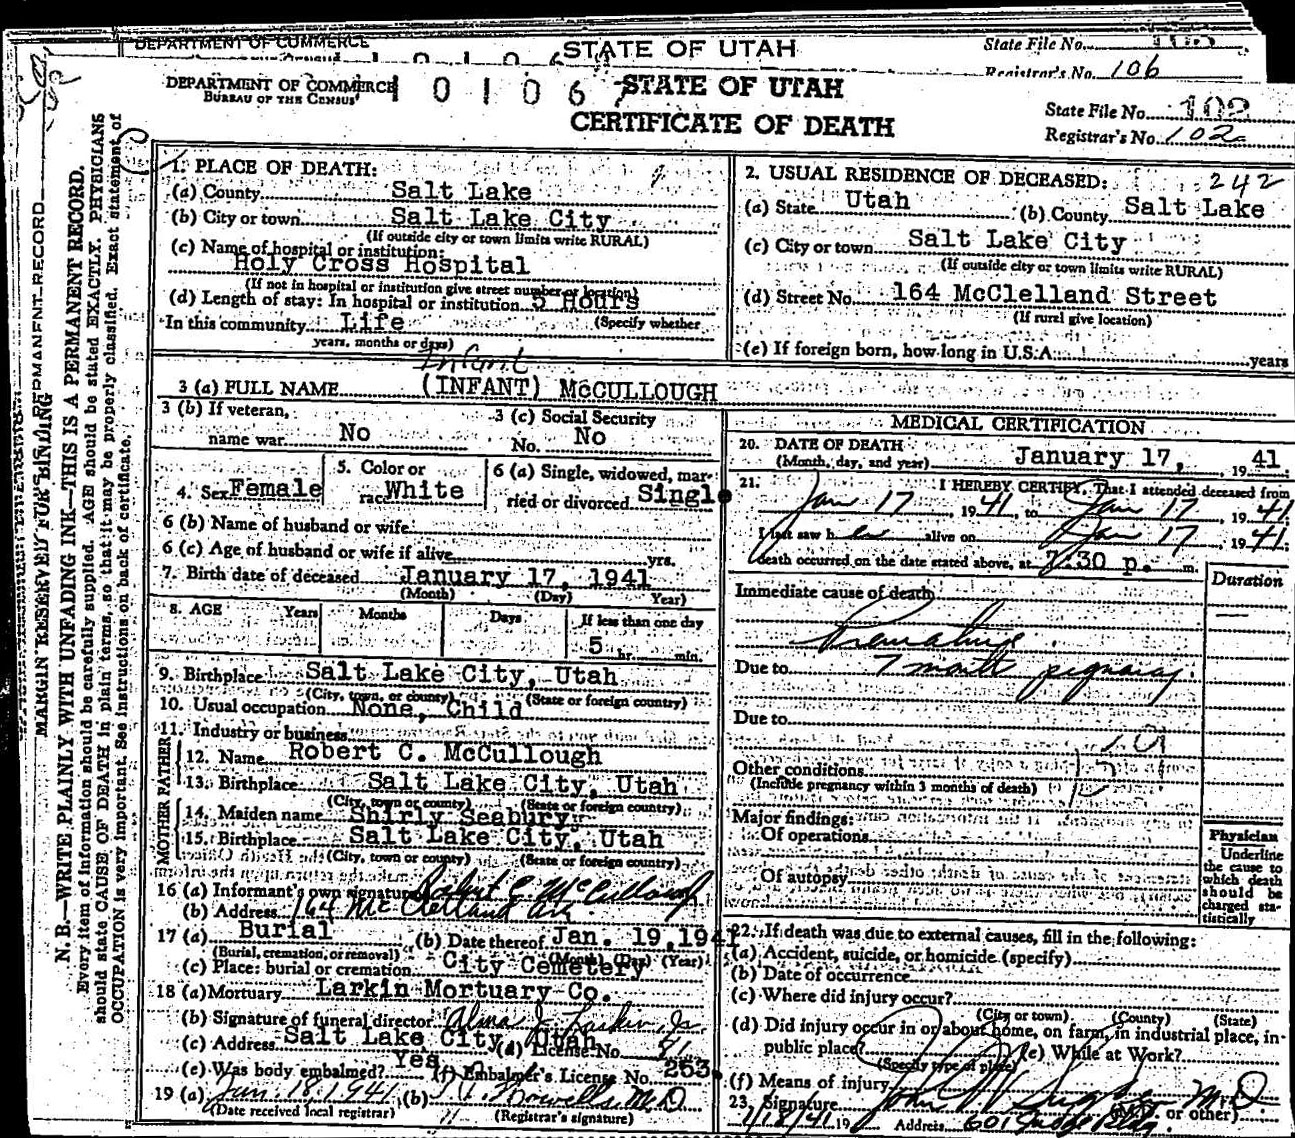 DEPARTMENT OF COMMERCE
STATE OF UTAH
State File No.
Registrar's No. 106
DEPARTMENT OF COMMERCE
BUREAU OF THE CENSUS
1 0 1 0 6
STATE OF UTAH
CERTIFICATE OF DEATH
State File No. 102
Registrar's No. 102
MARGIN RESERVED FOR BINDING
N. B.—WRITE PLAINLY WITH UNFADING INK—THIS IS A PERMANENT RECORD.
Every item of information should be carefully supplied. AGE should be stated EXACTLY. PHYSICIANS
should state CAUSE OF DEATH in plain terms, so that it may be properly classified. Exact statement of
OCCUPATION is very important. See instructions on back of certificate.
1. PLACE OF DEATH:
(a) County Salt Lake
(b) City or town Salt Lake City
(If outside city or town limits write RURAL)
(c) Name of hospital or institution:
Holy Cross Hospital
(If not in hospital or institution give street number or location)
(d) Length of stay: In hospital or institution 5 Hours
In this community Life (Specify whether
years, months or days)
2. USUAL RESIDENCE OF DECEASED: 242
(a) State Utah (b) County Salt Lake
(c) City or town Salt Lake City
(If outside city or town limits write RURAL)
(d) Street No. 164 McClelland Street
(If rural give location)
(e) If foreign born, how long in U.S.A. years
Infant
3 (a) FULL NAME (INFANT) McCULLOUGH
3 (b) If veteran,
name war No
3 (c) Social Security
No. No
4. Sex Female
5. Color or
race White
6 (a) Single, widowed, mar-
ried or divorced Single
6 (b) Name of husband or wife
6 (c) Age of husband or wife if alive yrs.
7. Birth date of deceased January 17, 1941
(Month) (Day) Year)
8. AGE Years Months Days If less than one day
5 hr. min.
9. Birthplace Salt Lake City, Utah
(City, town, or county) (State or foreign country)
10. Usual occupation None, Child
11. Industry or business
FATHER
12. Name Robert C. McCullough
13. Birthplace Salt Lake City, Utah
(City, town or county) (State or foreign country)
MOTHER
14. Maiden name Shirly Seabury
15. Birthplace Salt Lake City, Utah
(City, town or county) (State or foreign country)
16 (a) Informant's own signature Robert C. McCullough
(b) Address 164 McClelland
17 (a) Burial (b) Date thereof Jan. 19, 1941
(Burial, cremation, or removal) (Month) (Day) (Year)
(c) Place: burial or cremation City Cemetery
18 (a) Mortuary Larkin Mortuary Co.
(b) Signature of funeral director Alma J. Larkin Jr.
(c) Address Salt Lake City, Utah (d) License No. 41
(e) Was body embalmed? Yes (f) Embalmer's License No. 253
19 (a) Jan. 18, 1941 (b) Howells M.D.
(Date received local registrar) (Registrar's signature)
MEDICAL CERTIFICATION
20. DATE OF DEATH
(Month, day, and year) January 17, 1941
21. I HEREBY CERTIFY, That I attended deceased from
Jan 17, 1941, to Jan 17, 1941
I last saw her alive on Jan 17, 1941
death occurred on the date stated above, at 7.30 p. m.
Duration
Immediate cause of death
Premature
Due to 7 month pregnancy
Due to
Other conditions
(Include pregnancy within 3 months of death)
Major findings:
Of operations
Of autopsy
Physician
Underline
the cause to
which death
should be
charged sta-
tistically
22. If death was due to external causes, fill in the following:
(a) Accident, suicide, or homicide (specify)
(b) Date of occurrence
(c) Where did injury occur?
(City or town) (County) (State)
(d) Did injury occur in or about home, on farm, in industrial place, in-
public place? (e) While at Work?
(Specify type of place)
(f) Means of injury
23. Signature John M.D.
(M.D. or other)
1/18/41 19 Address 601 Judge Bldg.